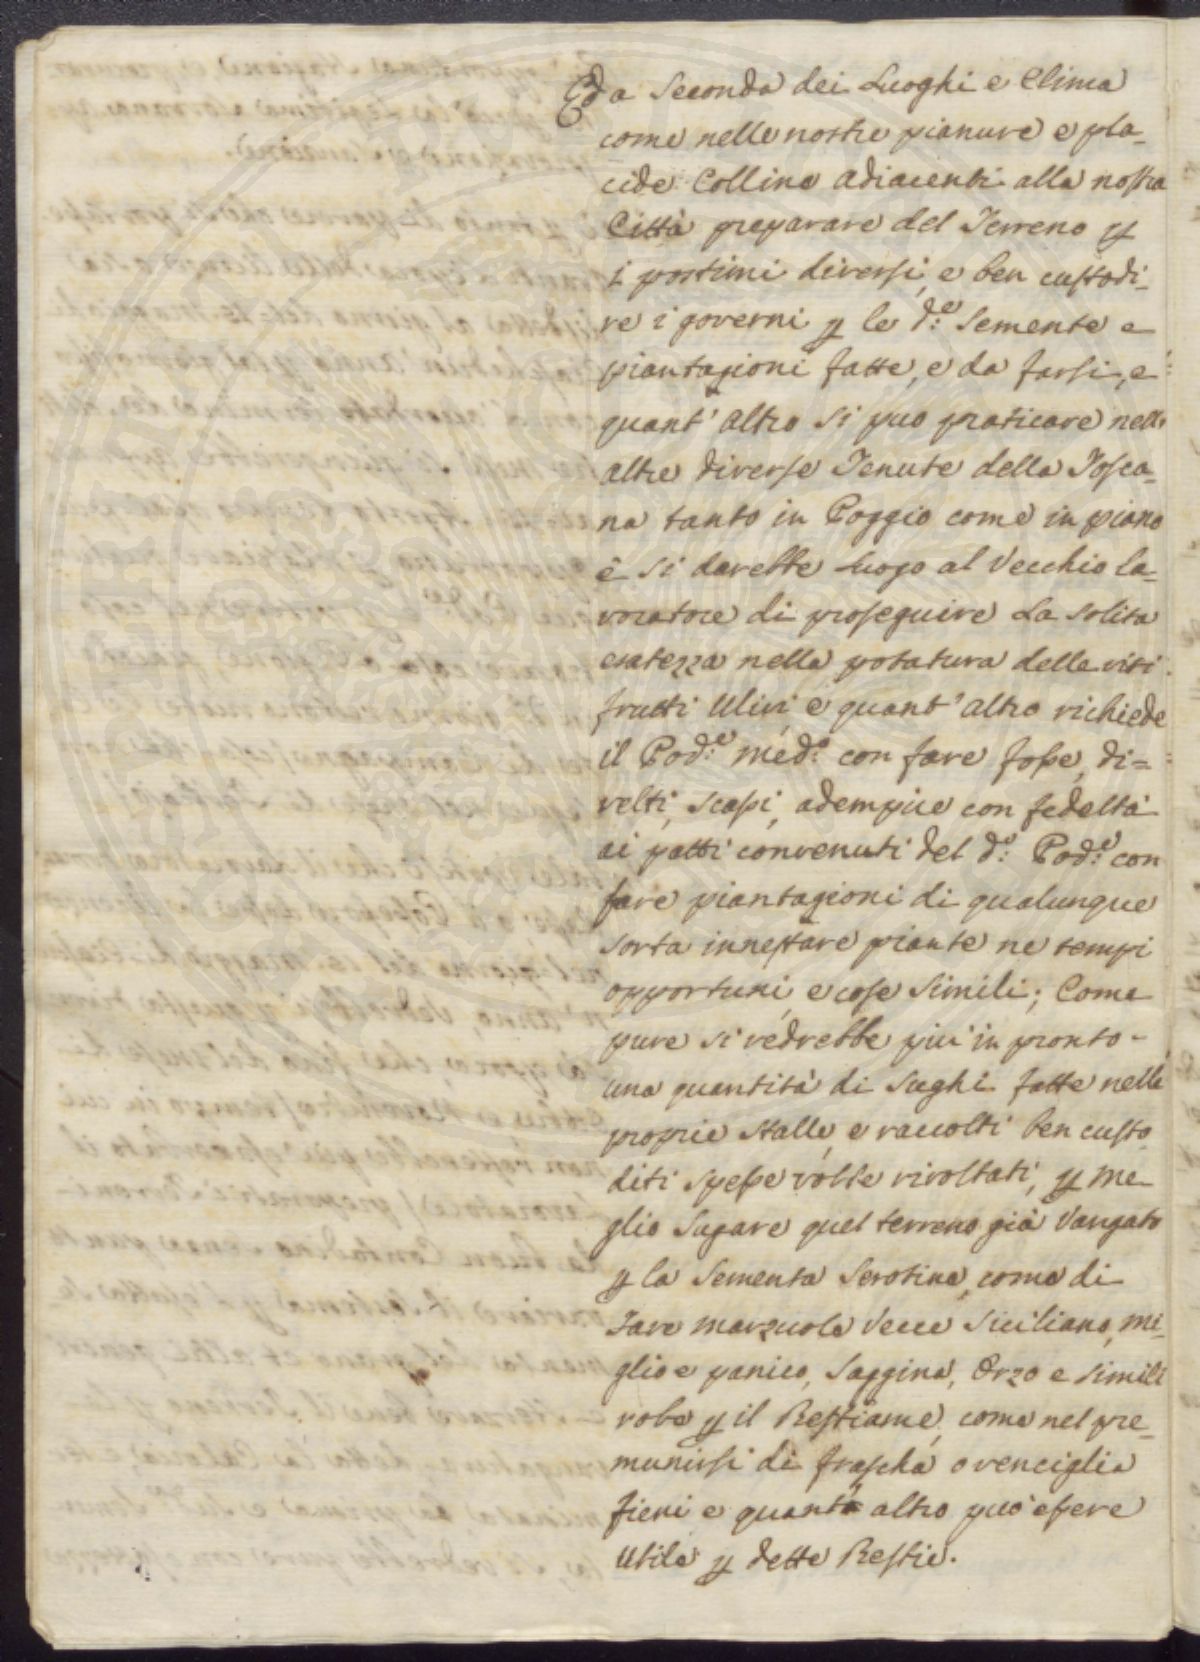 Ed a Seconda dei Luoghi e Clima
come nelle nostre pianure e pla-
cide Colline adiacenti alla nostra
Città preparare del Terreno p
i postimi diversi, e ben custodi-
re i governi p le d.e Semente e
piantagioni fatte, e da farsi, e
quant' altro si puo praticare nelle
altre diverse Tenute della Tosca-
na tanto in Poggio come in piano
e si darebbe Luogo al Vecchio la-
voratore di proseguire La solita
esatezza nella potatura delle viti
frutti Ulivi, e quant' altro richiede
il Pod.e med.o con fare fosse, di=
velti, scassi, adempire con fedeltà
ai patti convenuti del d.o Pod.e con
fare piantagioni di qualunque
sorta innestare piante ne tempi
opportuni, e cose simili; Come
pure si vedrebbe più in pronto -
una quantità di Sughi fatte nelle
proprie stalle, e raccolti ben custo
diti spesse volte rivoltati, p me-
glio Sugare quel terreno già Vangato
p la Sementa Serotina, come di
Fave marzuole Vecce Siciliane, mi-
glio e panico, Saggina, Orzo e simili
robe p il Bestiame, come nel pre-
munirsi di frascha o venciglia
fieni e quant' altro può essere
Utile p dette Bestie.